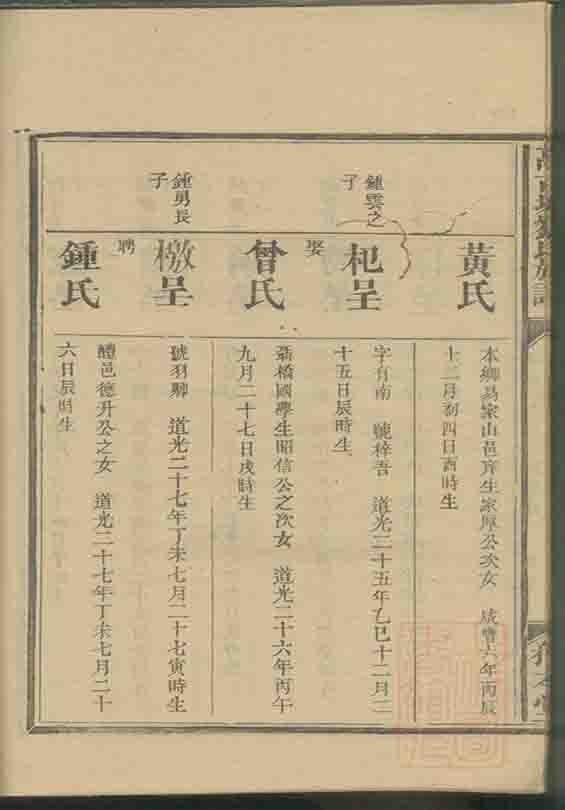 氏族
黃氏
本鄉易家山邑庠生家厚公次女 咸豐六年丙辰
十二月初四日酉時生
鍾雲之
子
杞呈
字自南 號梓吾 道光二十五年乙巳十二月二
十五日辰時生
娶
曾氏
國學生昭信公之次女 道光二十六年丙午
九月二十七日戌時生
鍾男長
子
檄呈
號羽卿 道光二十七年丁未七月二十七寅時生
聘
鍾氏
醴邑德升公之女 道光二十七年丁未七月二十
六日辰時生